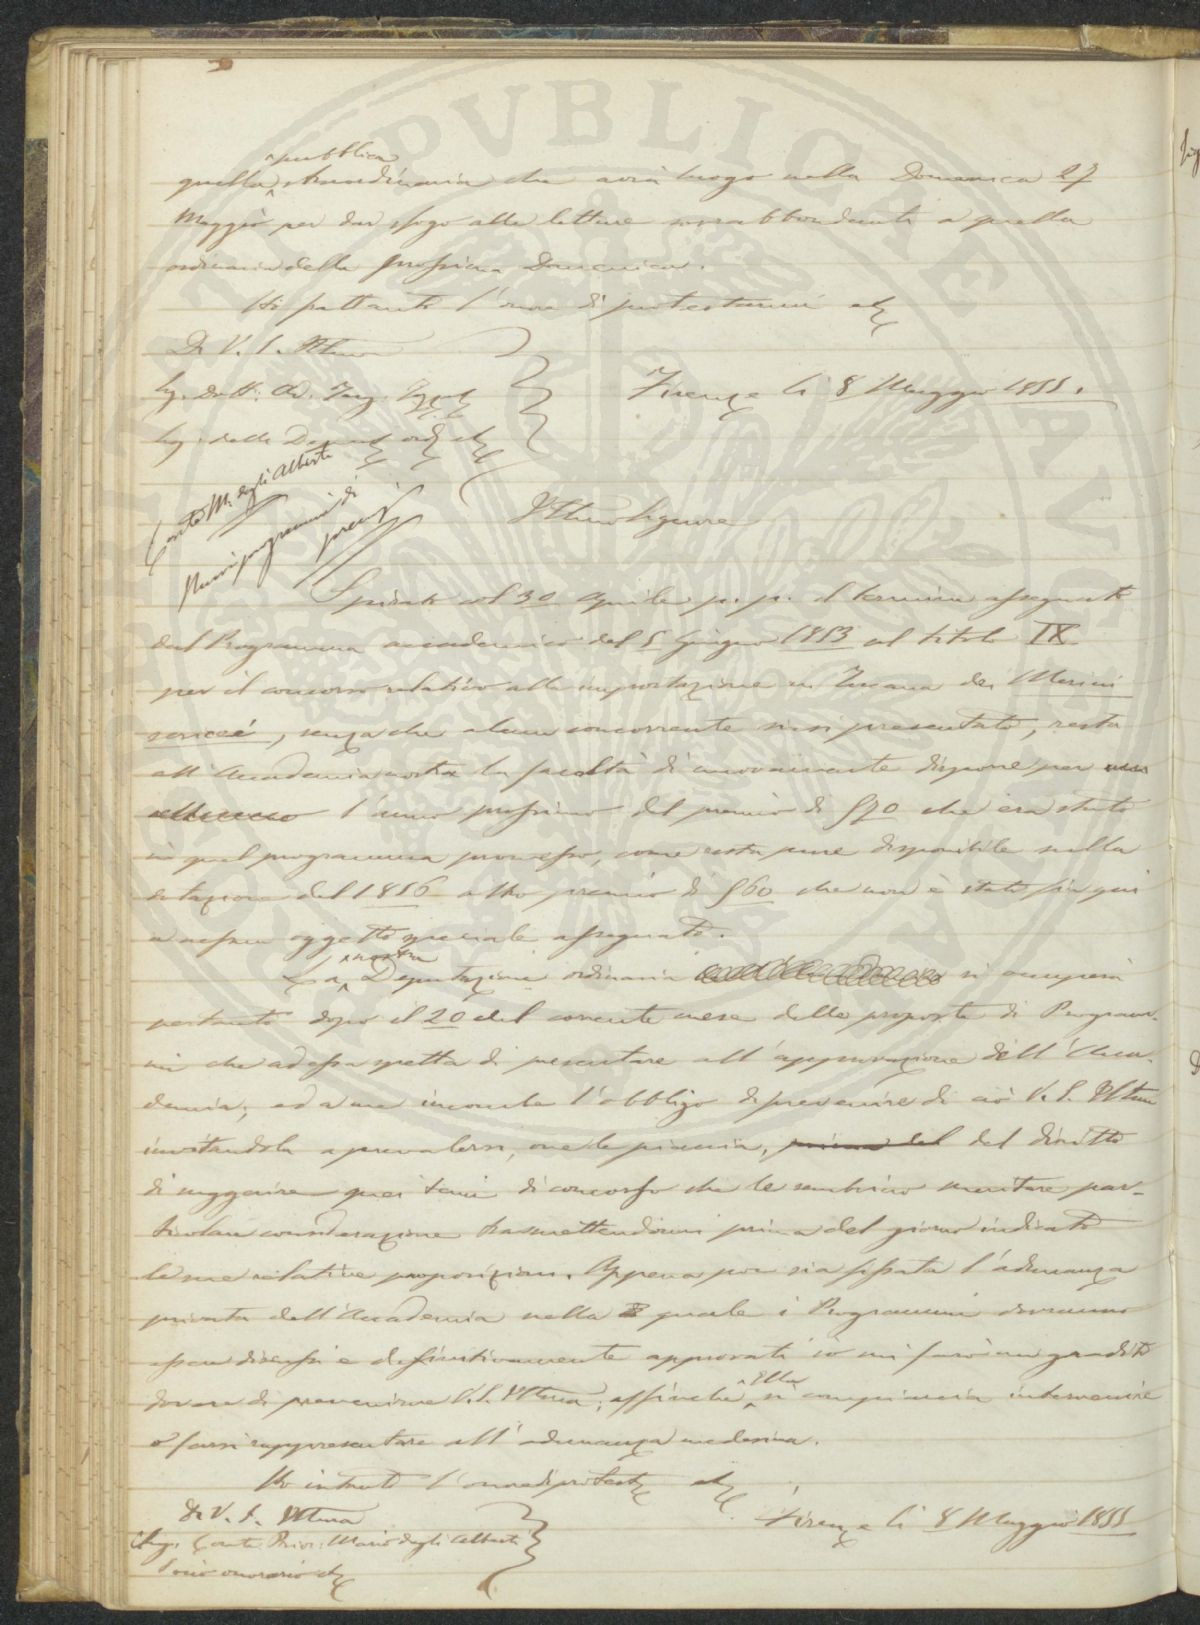 pubblica
quella straordinaria che avrà luogo nella Domenica 27
Maggio per dar sfogo alle letture sovrabbondanti a quella
ordinaria della prossima Domenica.
Ho frattanto l'onore di protestarmi
Di V. S. Illma
Sig. Dott. Ad. Targ.
Sig. della Deput ord
Firenze li 8 Maggio 1855.
Conte M. degli Alberti
Nuovi programmi di
premj
Illmo Signore
Spirato col 30 Aprile p. p. il termine assegnato
dal Programma accademico del 5 Giugno 1853 al titolo IX
per il concorso relativo alla importazione in Toscana dei Merini
, senza che alcun concorrente siasi presentato, resta
all'Accademia nostra la facoltà di nuovamente disporre per
l'anno prossimo del premio di 70 che era stato
in quel programma promesso, come resta pure disponibile nella
dotazione del 1856 altro premio di 60 che non è stato fin qui
a nessun oggetto speciale assegnato.
nostra
La Deputazione ordinaria si occuperà
pertanto dopo il 20 del corrente mese delle proposte di Program-
mi che ad essa spetta di presentare all'approvazione dell'Acca-
demia; ed a me incombe l'obbligo di prevenire di ciò V. S. Illma
invitandola a prevalersi, ove le piaccia, prima del del diritto
di suggerire quei temi di concorso che le sembrino meritare par-
ticolare considerazione trasmettendomi prima del giorno indicato
le sue relative proposizioni. Appena poi sia fissata l'adunanza
privata dell'Accademia nella quale i Programmi dovranno
essere discussi e definitivamente approvati io mi farò un gradito
dovere di prevenirne V. S. Illma, affinchè Ella si compiaccia intervenire
o farsi rappresentare all'adunanza medesima.
Ho intanto l'onore di protest
Di V. S. Illma
Firenze li 8 Maggio 1855
Sig. Conte Prior: Mario degli Alberti
Socio onorario
PVBLICAE